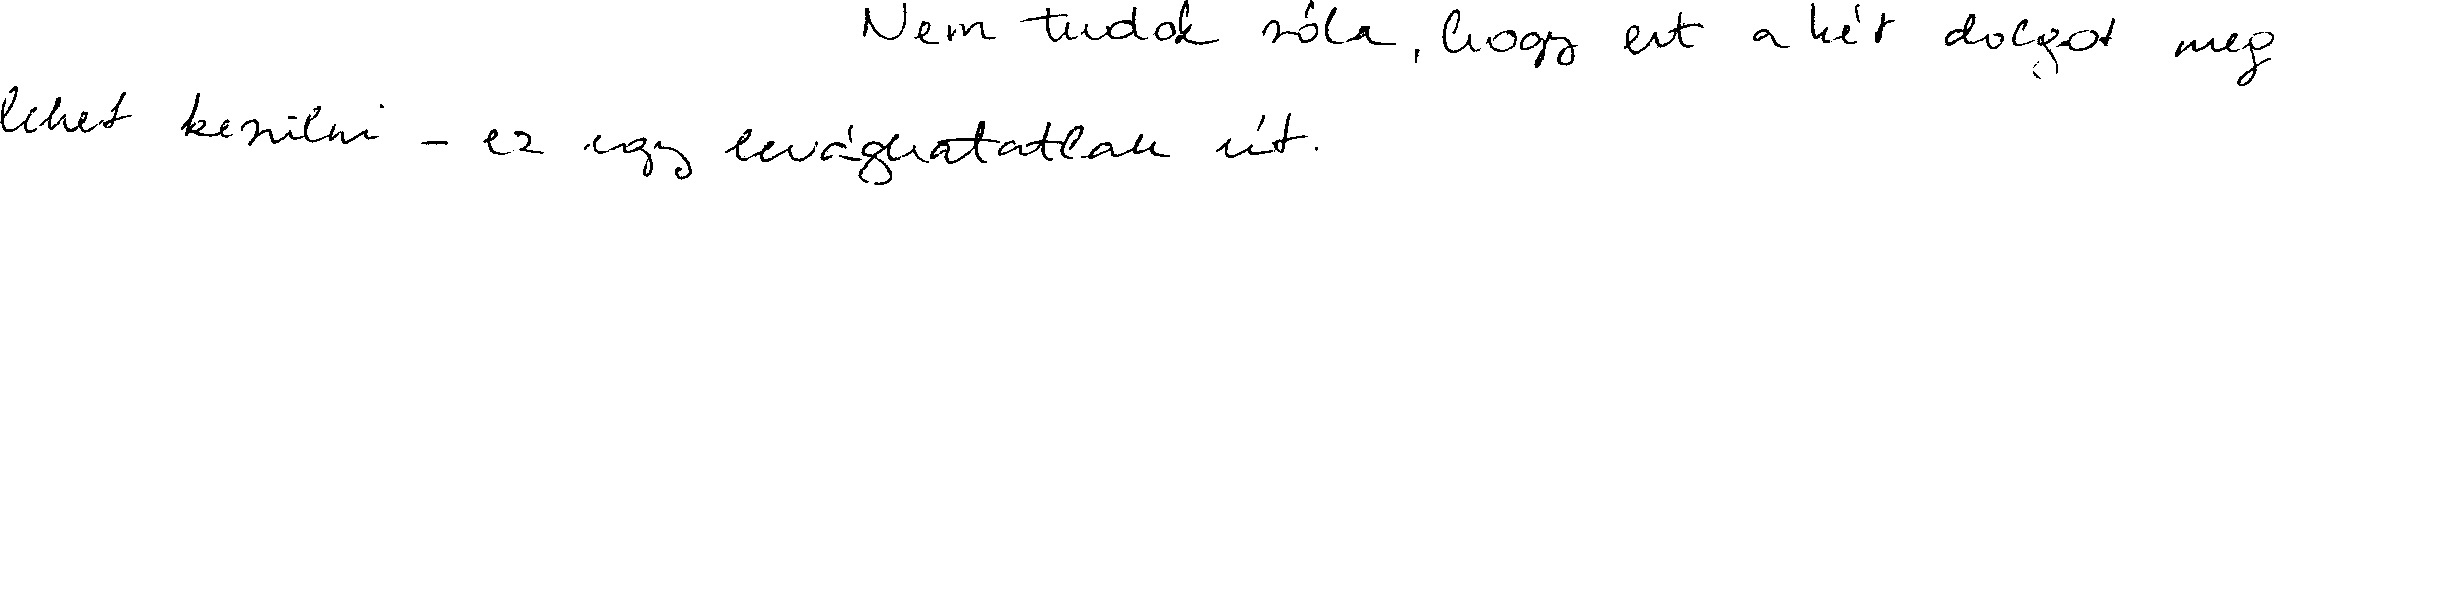 Nem tudok róla, hogy ezt a két dolgot meg
lehet kerülni – ez egy levághatatlan út.